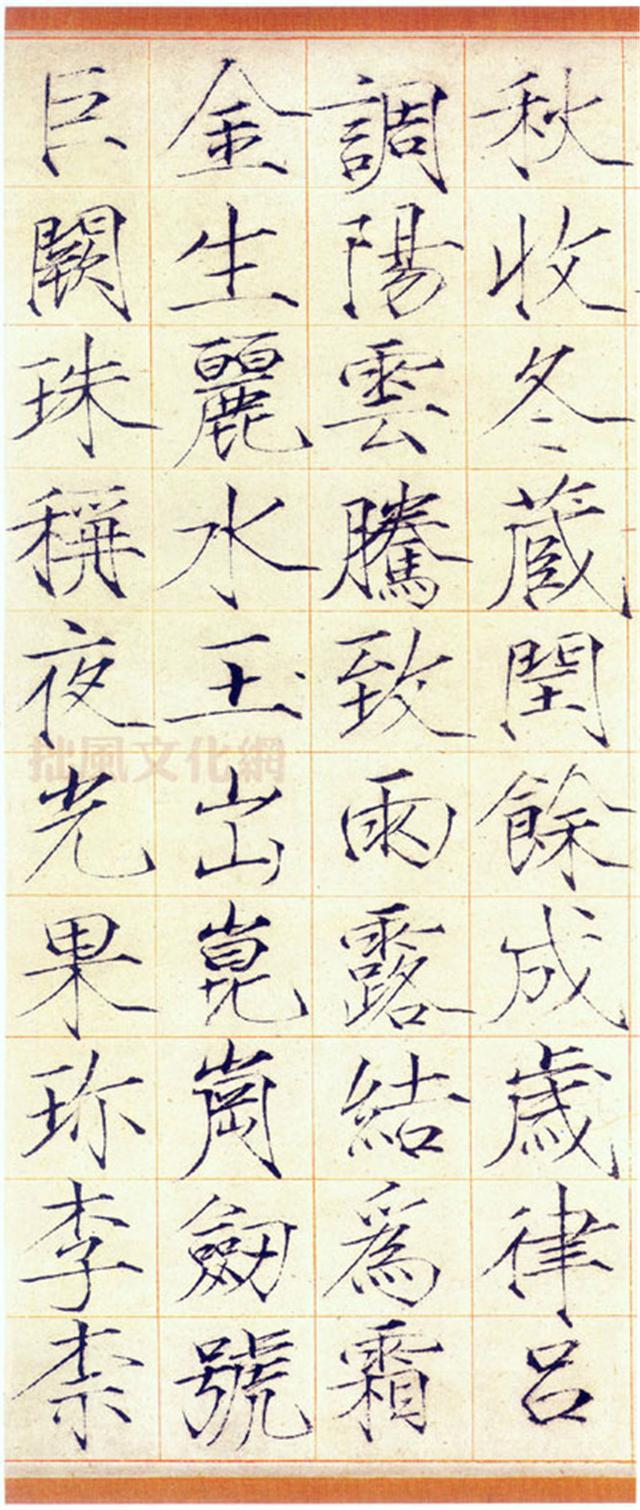 秋收冬藏閏餘成歲律呂
調陽雲騰致雨露結爲霜
金生麗水玉岀崑崗劒號
巨闕珠稱夜光果珎李柰
拙風文化網